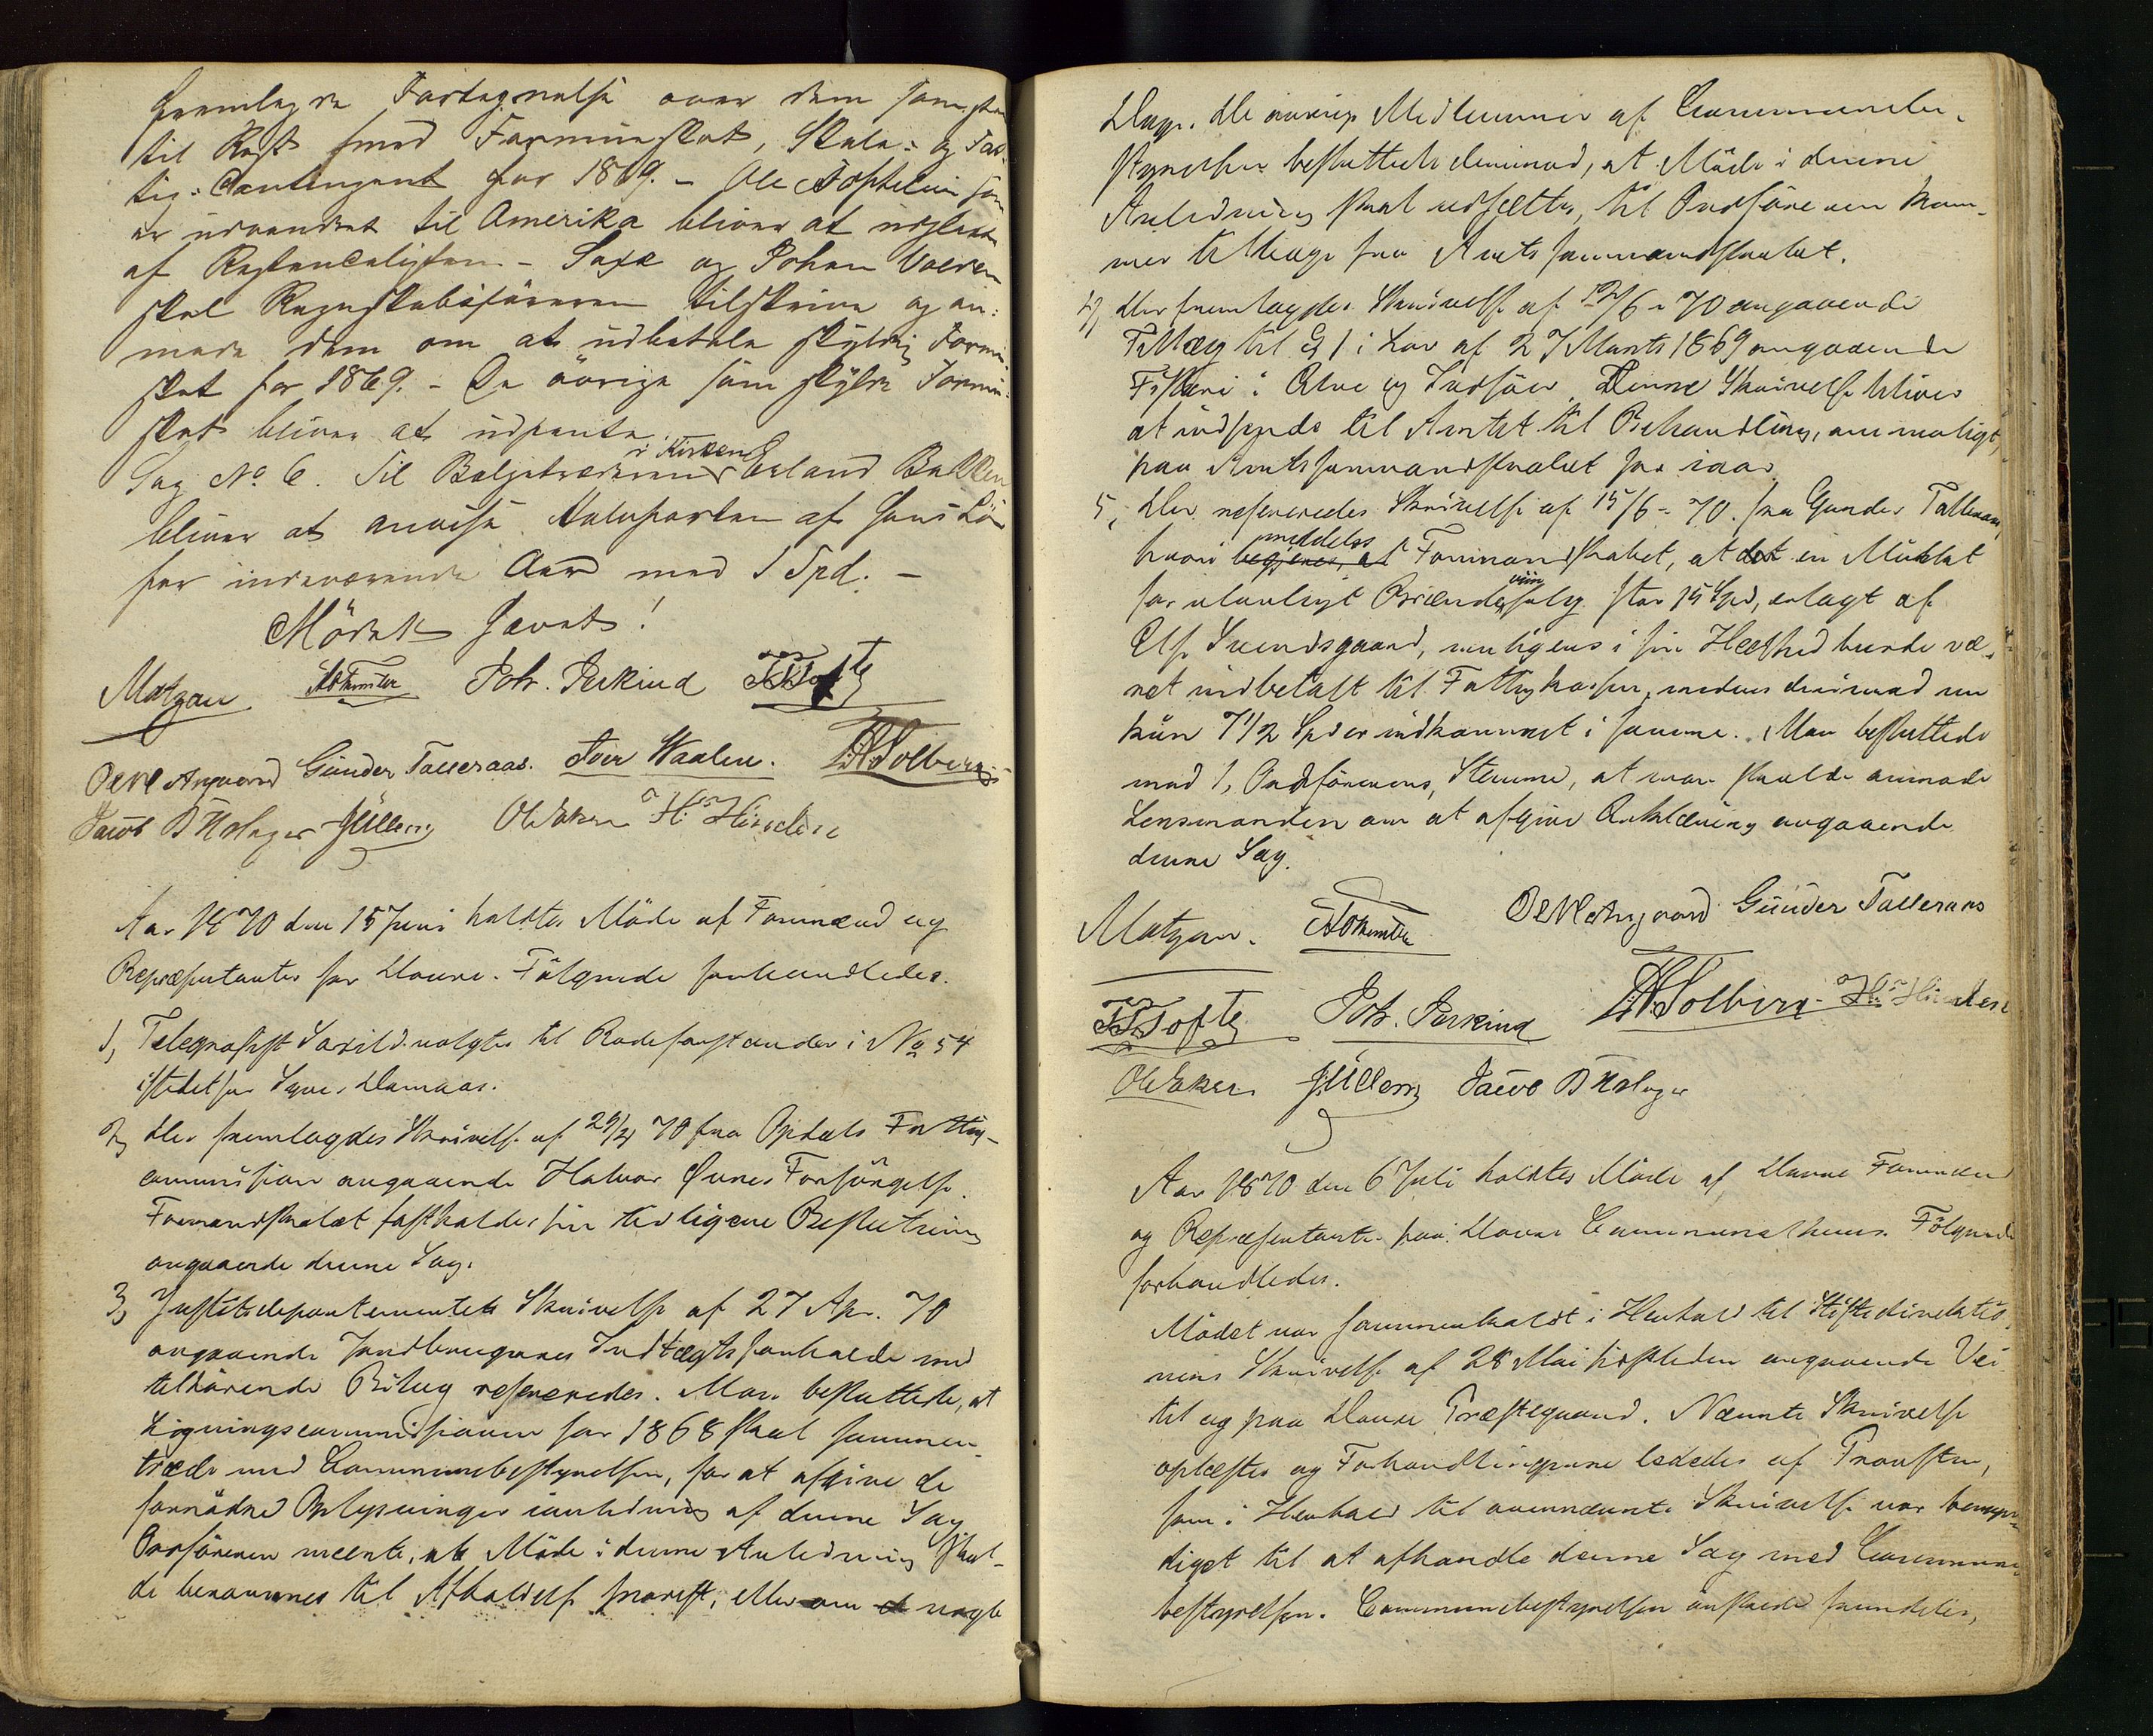 fremlagde Fortegnelse over dem som staa
til Rest med Formueskat, Skole- og Fat-
tig-Contingent for 1869. – Ole Tofteliein som
er udvandret til Amerika bliver at udslette
af Restanselisten. – Saxe og Johan Volden
skal Regnskabsføreren tilskrive og an-
mode dem om at udbetale skyldig Formue-
skat for 1869. – De øvrige som skylde Formue-
skat bliver at udpante.
Sag No. 6. Til Bælgetræderen i Kirken Erland Bakken
bliver at anvise Halvparten af hans Løn
for indeværende Aar med 1 Spd. –
Mödet hævet!
Matzau Joh. Jerkind T. Tofte
Ole Angaard Gunder Talleraas. Iver Waalen. Solberg
Jacob Jülleng Ole Eker H. Hindsen
Aar 1870 den 15 Juni holdtes Möde af Formænd og
Repræsentanter for Dovre. Fölgende forhandledes.
1, Telegrafist Saxild valgtes til Rodeforstander i No 54
istedetfor Syver Domaas.
2, Der fremlagdes Skrivelse af 29/4 70 fra Opdals Fattig-
commission angaaende Halvor Ones Forsörgelse.
Formandskabet fastholder sin tidligere Beslutning
angaaende denne Sag.
3, Justitsdepartementets Skrivelse af 27 Apr. 70
angaaende Jordbrugernes Indtægtsforholde med
tilhörende Bilag refereredes. Man besluttede, at
Ligningscommissionen for 1868 skal sammen-
træde med Communebestyrelsen, for at afgive de
fornödne Oplysninger i anledning af denne Sag
Ordföreren meente, at Möde i denne Anledning skul-
de berammes til Afholdelse snarest, eller om nogle
Dage. De övrige Medlemmer af Communebe-
styrelsen besluttede derimod, at Möde i denne
Anledning skal udsættes, til Ordföreren kom-
mer tilbage fra Amtsformandskabet.
4, Der fremlagdes Skrivelse af 12/6 - 70 angaaende
Tillæg til § 1 i Lov af 27 Marts 1869 angaaende
Fiskeri i Elve og Indsöer. Denne Skrivelse bliver
at indsende til Amtet til Behandling, om muligt,
paa Amtsformandskabet for iaar.
5, Der refereredes Skrivelse af 15/6 - 70. fra Gunder Talleraas,
hvori begjeres, at meddeles Formandskabet, at det en Mulkt
for ulovligt Brændeviinsalg stor 15 Spd, erlagt af
Elf. Svendsgaard, muligens i sin Heelhed burde væ-
ret indbetalt til Fattigkassen, medens derimod nu
kun 7 1/2 Spd er indkommet i samme. Man besluttede
mod 1, Ordförerens, Stemme, at man skulde anmode
Lensmanden om at afgive Erklæring angaaende
denne Sag.
Matzau. Ole Angaard Gunder Talleraas
T. Tofte Joh. Jerkind Solberg H. Hindsen
Ole Eker Jülleng Jacob
Aar 1870 den 6 Juli holdtes Möde af Dovre Formænd
og Repræsentanter paa Dovre Communelhuus. Fölgende
forhandledes.
Mödet var sammenkaldt i Henhold til Stiftsdirektio-
nens Skrivelse af 28 Mai sidstleden angaaende Vei
til og paa Dovre Præstegaard. Nævnte Skrivelse
oplæstes og Forhandlingerne lededes af Provsten,
som i Henhold til ovennævnte Skrivelse var bemyn-
diget til at afhandle denne Sag med Commune-
bestyrelsen. Communebestyrelsen önskede fremdeles,